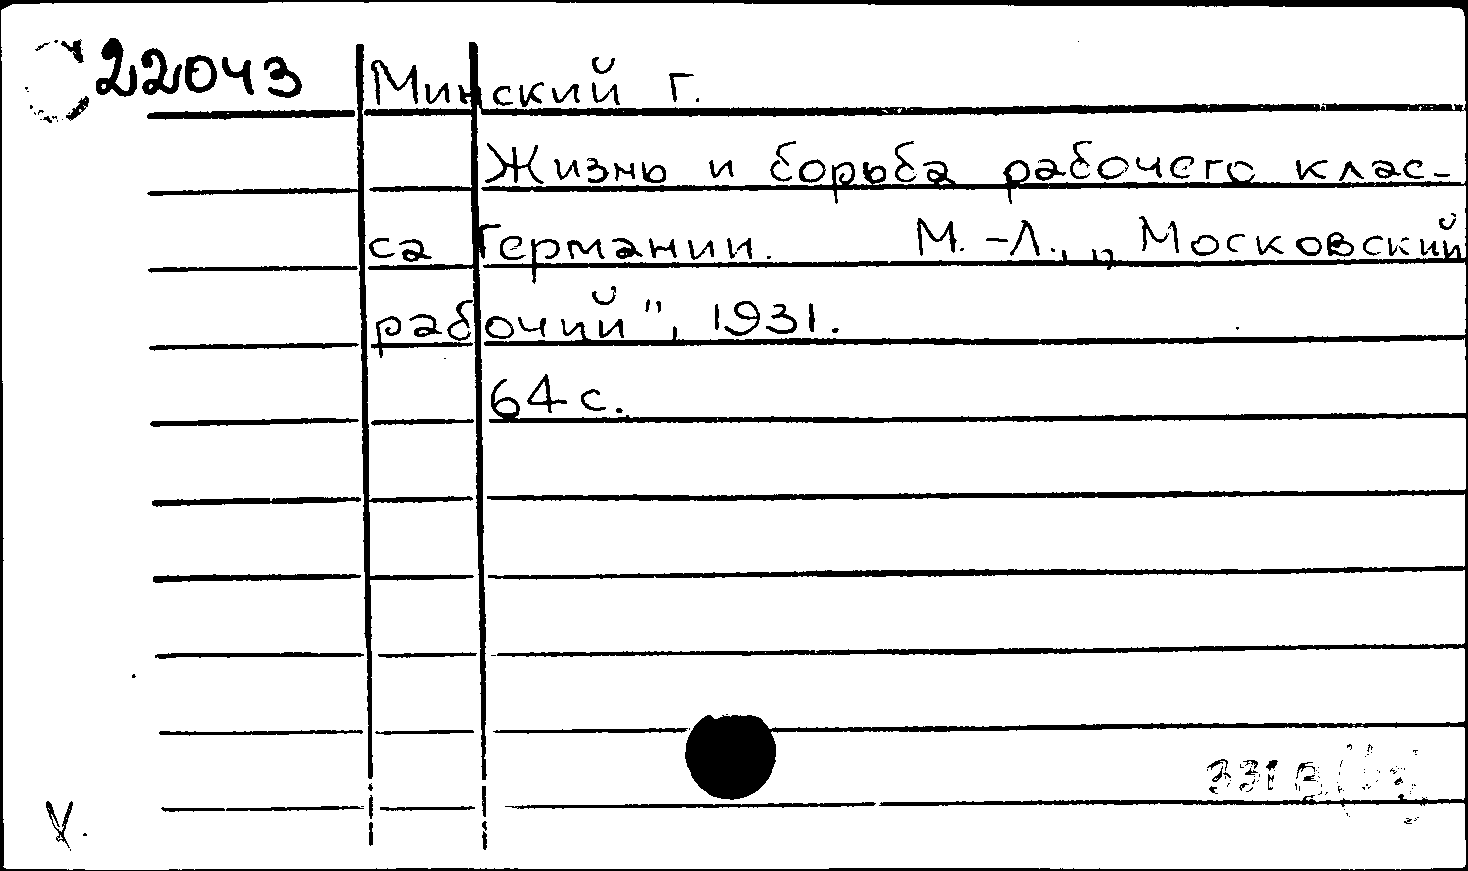 22043 Минский Г.
Жизнь и борьба рабочего клас-
са Германии. М.-Л., „Московский
рабочий", 1931.
64 с.